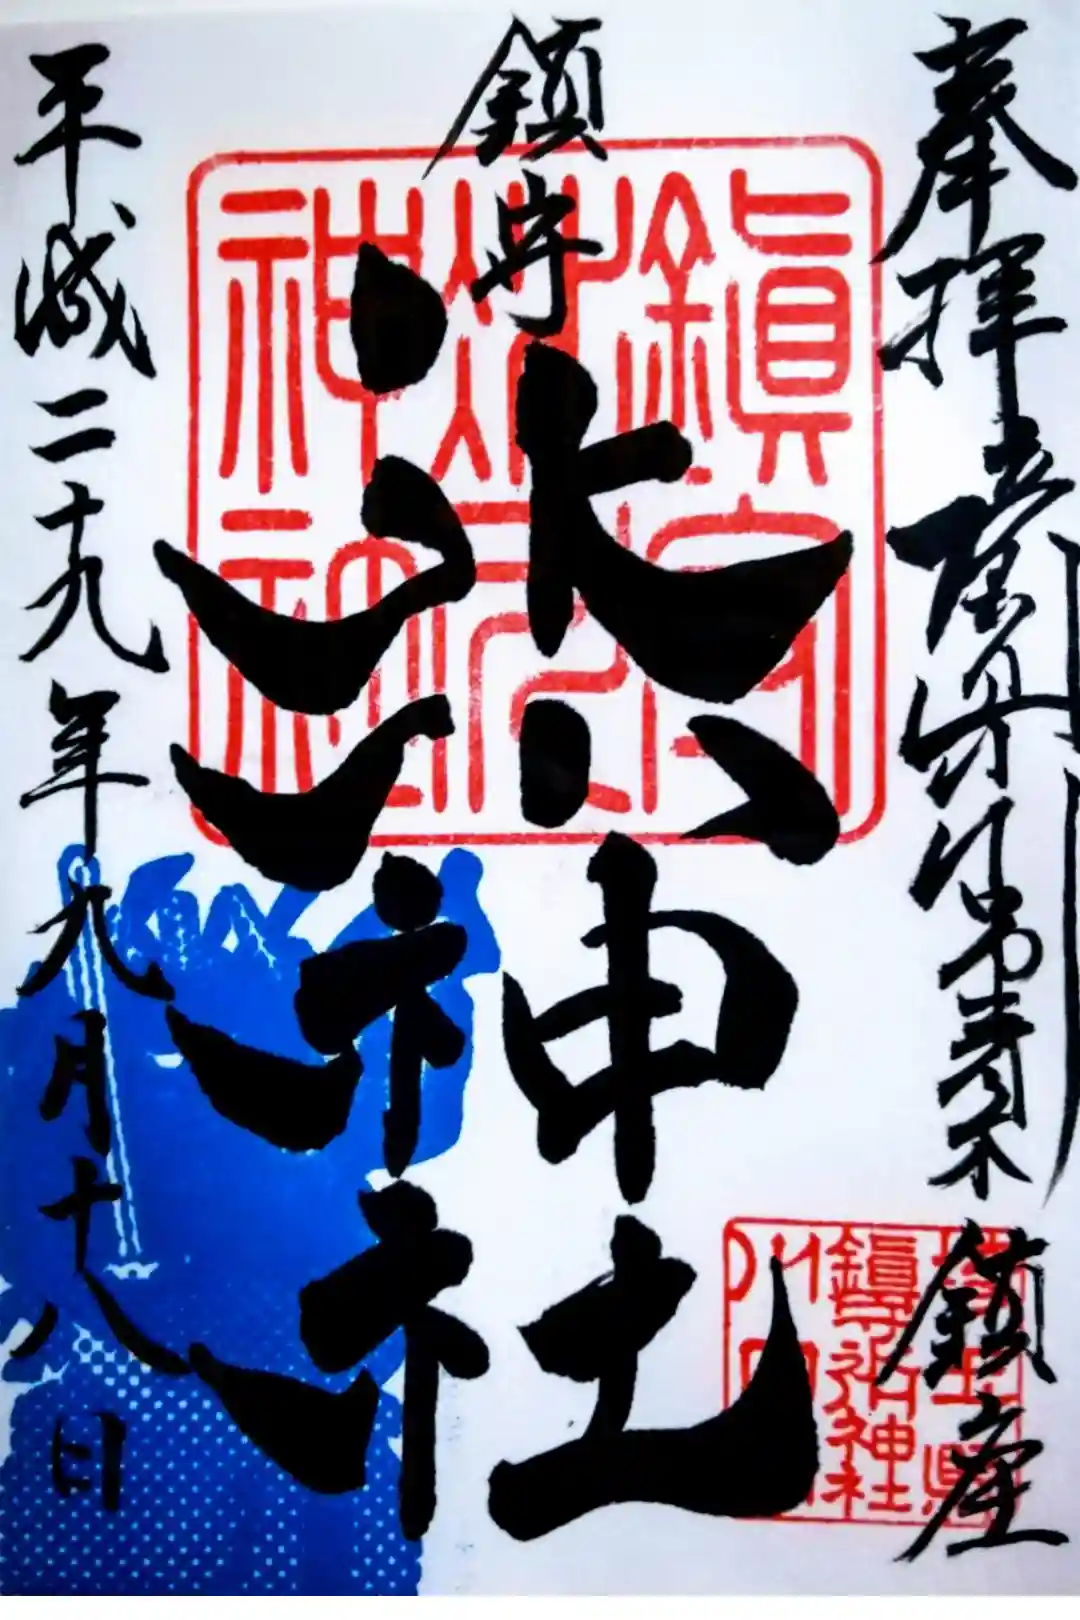 奉拝
青木
鎮座
鎮守
氷川神社
平成二十九年九月十八日
鎮守
氷川
神社
埼玉県
鎮守氷川神社
川口